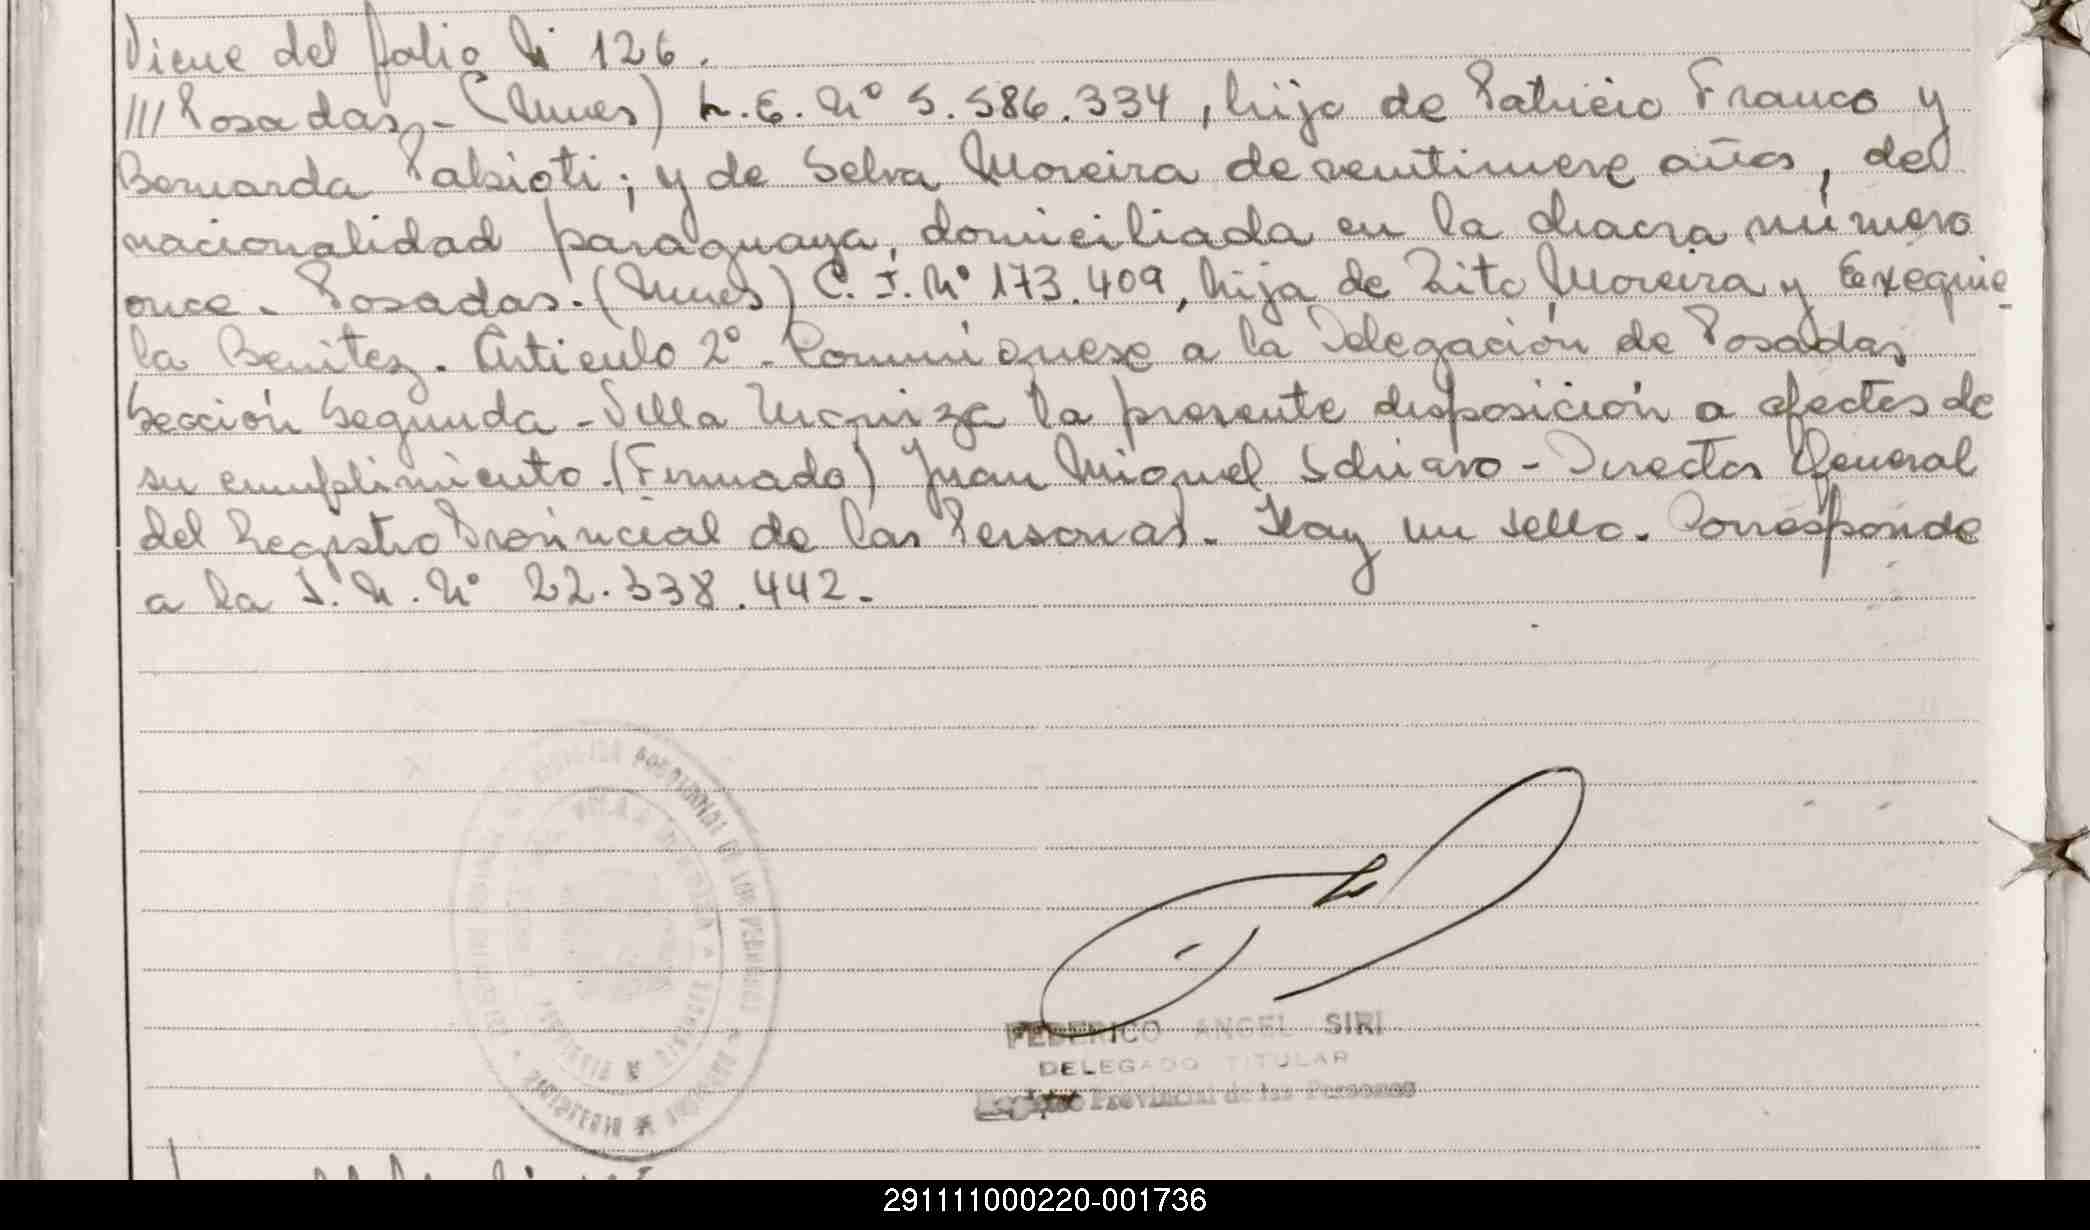 Viene del folio Nº 126.
/// Posadas,- (Mnes) L.E. Nº 5.586.334, hijo de Patricio Franco y
Bernarda Pabioti; y de Selva Moreira de veintinueve años, de
nacionalidad paraguaya, domiciliada en la chacra número
once. Posadas. (Mnes) C.I. Nº 173.409, hija de Zito Moreira y Exequie
la Benitez. Articulo 2º. Comuníquese a la Delegación de Posadas
Sección Segunda - Villa Urquiza la presente disposición a efectos de
su cumplimiento. (Firmado) Juan Miguel - Director General
del Registro Provincial de las Personas. Hay un sello. Corresponde
a la I.N. Nº 22.338.442.-
FEDERICO ANGEL SIRI
DELEGADO TITULAR
Registro Provincial de las Personas
291111000220-001736